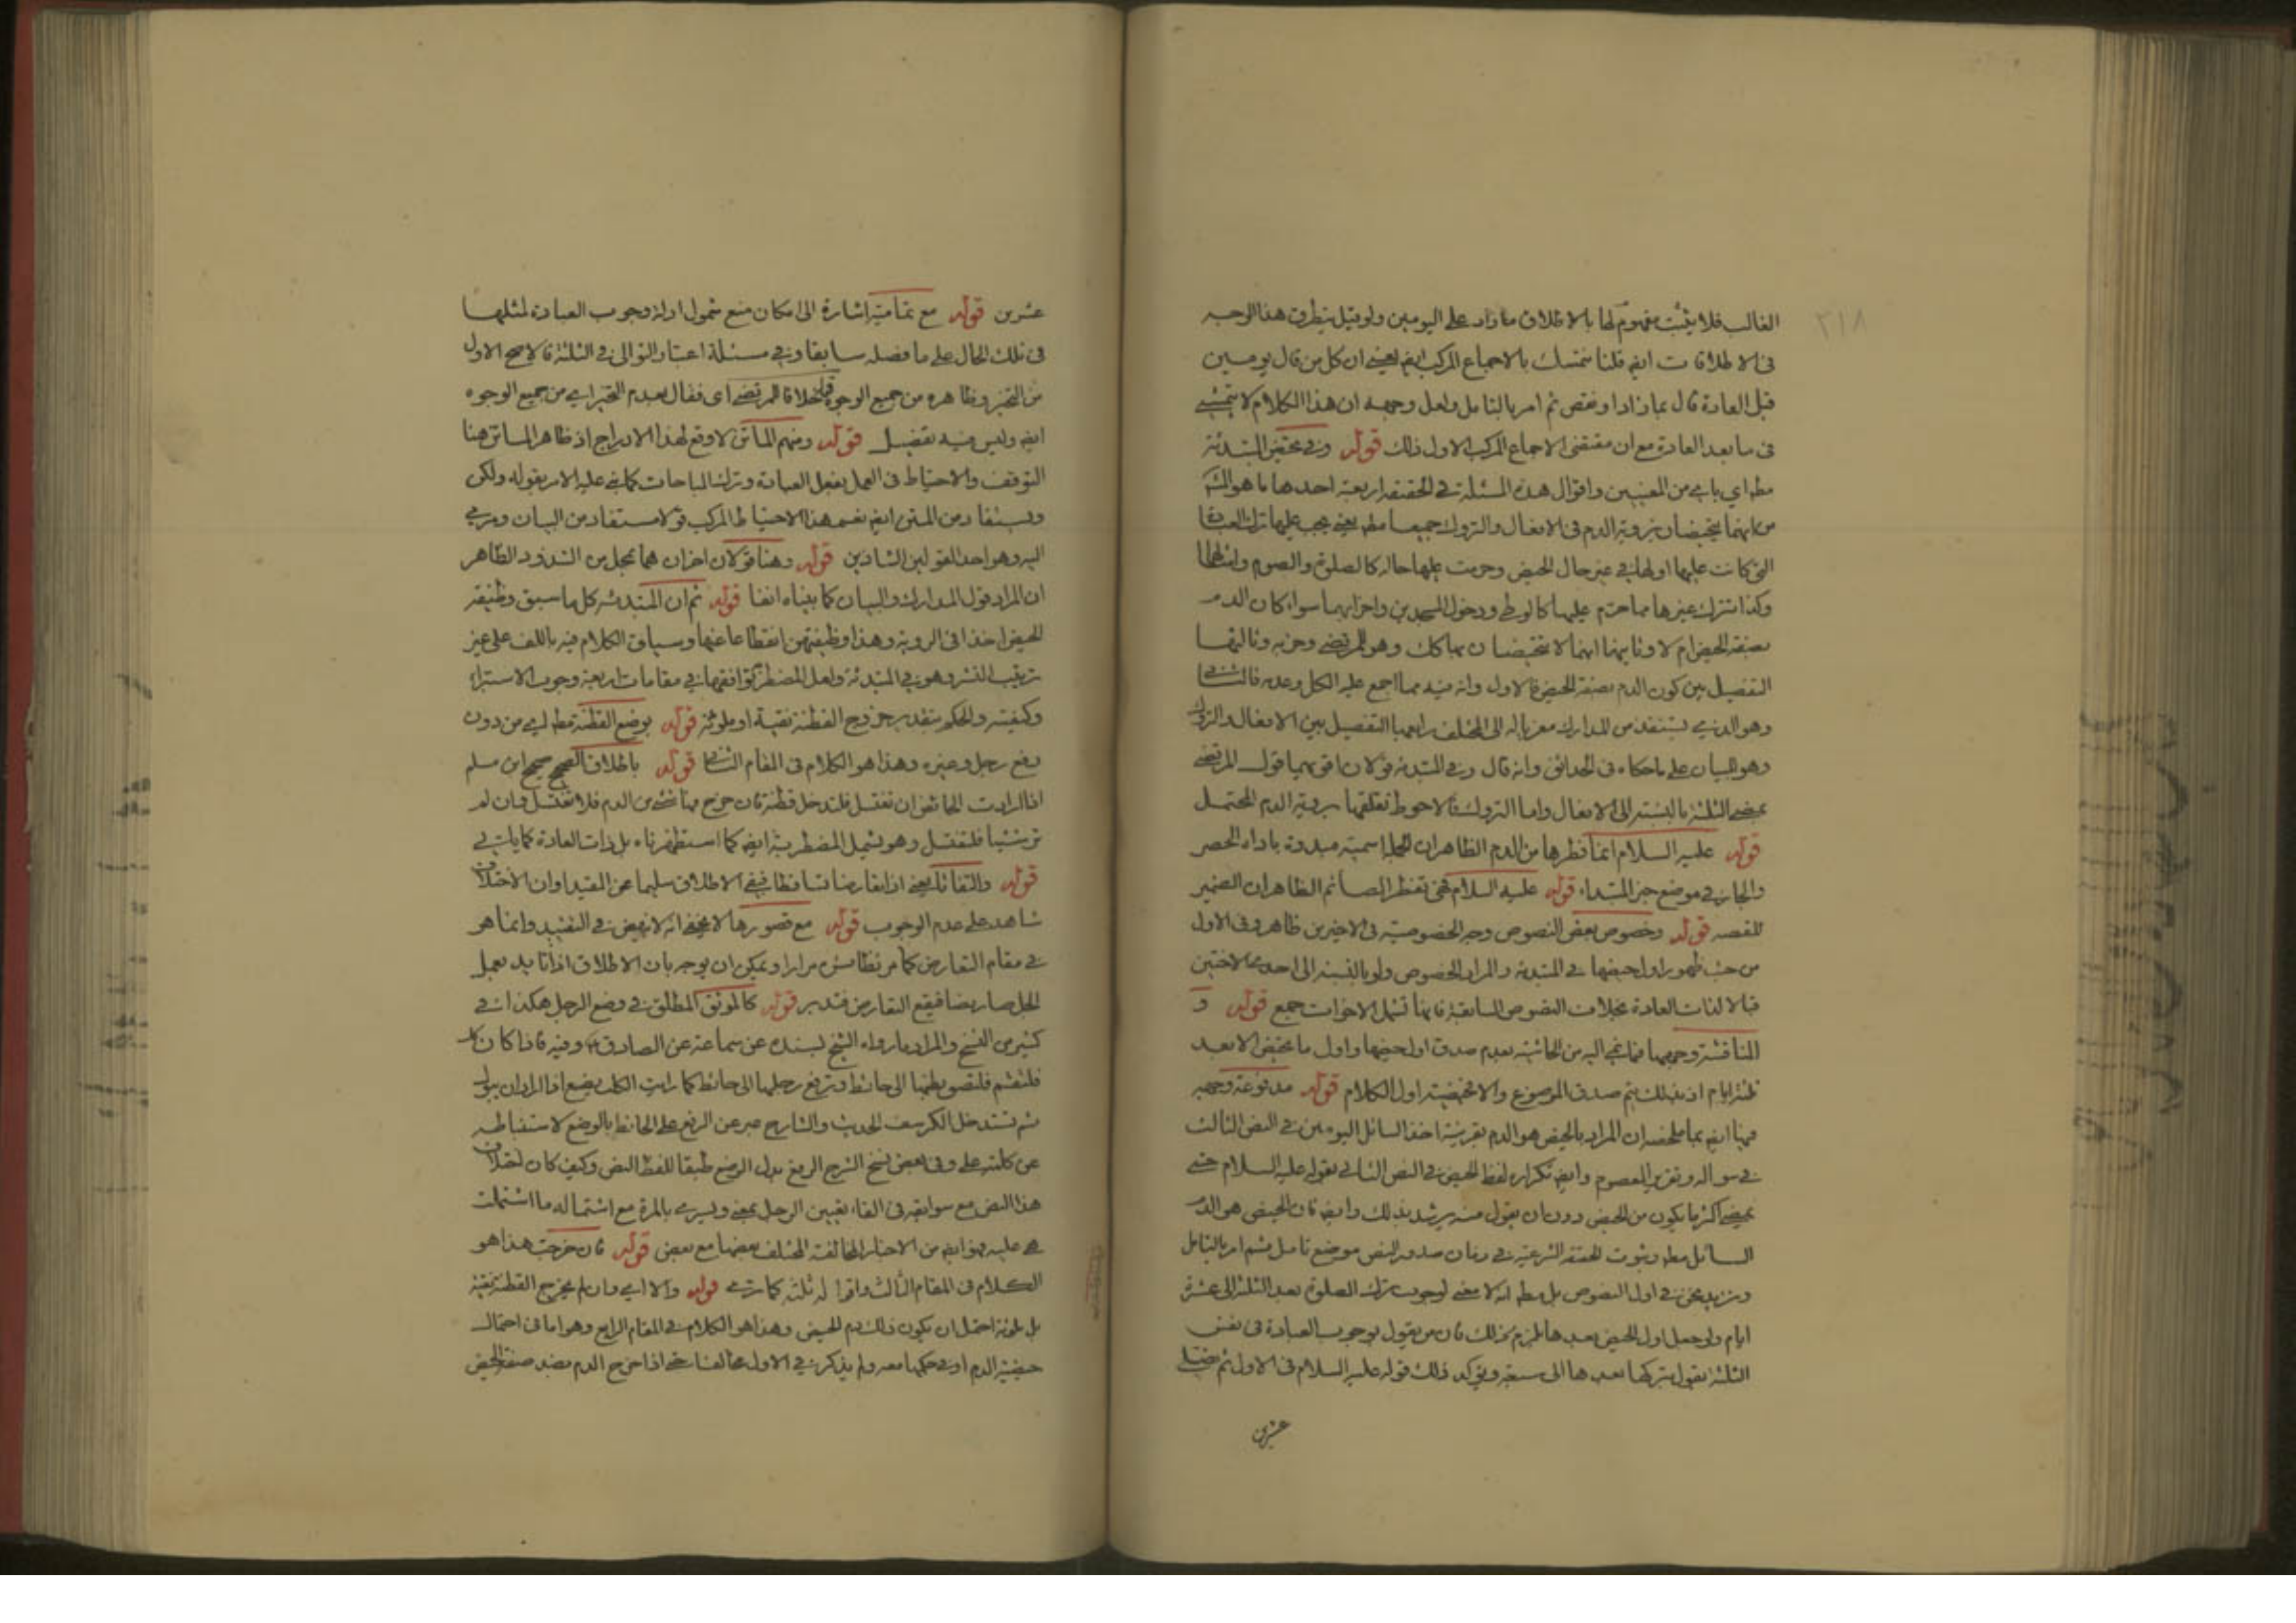 ٢١٨
الغالب فلا يثبت مفهوم لها بالاطلاق ما زاد على اليومين ولو قيل بتطرق هذا الوجه
فى الاطلاقات ايض قلنا نتمسك بالاجماع المركب ايض يعنے ان كل من قال يومين
قبل العادة قال بما زاد او نقص ثم امر بالتامل ولعل وجهه ان هذا الكلام لا يتمشے
فى ما بعد العادة مع ان مقتضى الاجماع المركب الاول ذلك قوله وفے تحيض المبتدئة
مطه اي بابے من المعنيين واقوال هذه المسئلة فے الحقيقة اربعة احدها ما هو
من انهما يتحيضان بروية الدم فى الافعال والتروك جميعا مطه يعنے يجب عليها ترك العبادة
التى كانت عليها اولها فے غير حال الحيض وحرمت عليها حاله كالصلوة والصوم
وكذا تترك غيرها مما حرم عليها كالوطے ودخول المسجدين واجزائهما سواء كان الدم
بصفة الحيض ام لا وثانيها انهما لا تتحيضان بها كك وهو للمرتضے وحزبه وثالثها
التفصيل بين كون الدم بصفة الحيض فالاول وانه فيه مما اجمع عليه الكل وعدمه فالثانے
وهو الذے يستفاد من المدارك معزيا له الى المختلف رابعها التفصيل بين الافعال والتروك
وهو للبيان على ما حكاه فى الحدائق وانه قال وفے المبتدئة قولان اقويهما قول المرتضے
بمضے الثلثة بالنسبة الى الافعال واما التروك فالاحوط تعلقها بروية الدم المحتمل
قوله عليه السلام انما فطرها من الدم الظاهر ان الجملة اسمية مبدوة باداة الحصر
والجار فے موضع خبر المبتداء قوله عليه السلام تفطر الصائم الظاهر ان الضمير
للقصة قوله وخصوص بعض النصوص وجه الخصوصية فى الاخيرين ظاهر وفى الاول
من حيث ظهور اول حيضها فے المبتدئة والمراد الخصوص ولو بالنسبة الى احدے الاختين
قبالا لذات العادة بخلاف النصوص السابقة فانها تشمل الاخوات جمع قوله و
المناقشة وجهها فما نجے اليه من الحاشية بعدم صدق اول حيضها واول ما تحيض الا بعد
ثلثة ايام اذ بذلك يتم صدق الموضوع والا تحيضية اول الكلام قوله مدفوعة وجهه
فيها ايض بما ملخصه ان المراد بالحيض هو الدم بقرينة اخذ السائل اليومين فے النص الثالث
فے سواله وتقرير المعصوم وايض تكراره لفظ الحيض فے النص الثانے بقوله عليه السلام حتے
يمضے اكثر ما يكون من الحيض دون ان يقول منه يرشد بذلك وايض فان الحيض هو الدم
السائل مطه وثبوت الحقيقة الشرعية فے زمان صدور النص موضع تامل ثم امر بالتامل
ونزيد نحن فے اول النصوص بل مطه انه لا معنے لوجوب ترك الصلوة بعد الثلثة الى عشرة
ايام ولو جعل اول الحيض بعدها لزم ذلك فان من يقول بوجوب العبادة فى نفس
الثلثة يقول بتركها بعدها الى سبعة ويؤكد ذلك قوله عليه السلام فى الاول ثم تصلے
عشرين
عشرين قوله مع تمامية اشارة الى امكان منع شمول ادلة وجوب العبادة لمثلها
فى تلك الحال على ما فصله سابقا وفے مسئلة اعتبار التوالى فے الثلثة فالاصح الاول
من التحيز وظاهره من جميع الوجوه قوله خلافا للمرتضے اى فقال بعدم التحيز اے من جميع الوجوه
ايض وليس فيه تفصيل قوله ومنهم الماتن لا وقع لهذا الادراج اذ ظاهر الماتن هنا
التوقف والاحتياط فى العمل بفعل العبادة وترك المباحات كما نے عليه الامر بقوله ولكن
ويستفاد من المتن ايض نفسه هذا الاحتياط المركب قولا مستفاد من البيان ومرے
اليه وهو احد القولين الشاذين قوله وهنا قولان اخران هما بمحل من الشذوذ الظاهر
ان المراد قول المدارك والبيان كما بيناه انفا قوله ثم ان المبتدئة كل ما سبق وظيفة
الحيض اخذا فى الروية وهذا وظيفتهن انقطاعا عنها وسياق الكلام فيه باللف على غير
ترتيب النشر وهو فے المبتدئة ولعل المضطربة توافقها فے مقامات اربعة وجوب الاستبراء
وكيفيته والحكم بتقدير خروج القطنة نقية او ملوثة قوله بوضع القطنة مطه اے من دون
رفع رجل وغيره وهذا هو الكلام فى المقام الثانے قوله باطلاق الصحيح صحيح ابن مسلم
اذا ارادت الحائض ان تغتسل فلتدخل قطنة فان خرج فيها شےء من الدم فلا تغتسل وان لم
تر شيئا فلتغتسل وهو يشمل المضطربة ايض كما استظهرناه بل ذات العادة كما ياتے
قوله والتقابل يعنے اذا تعارضا تساقطا فيبقے الاطلاق سليما عن المقيد او ان الاختلاف
شاهد على عدم الوجوب قوله مع قصورها لا يخفے انه لا نهوض فے التقييد وانما هو
فے مقام التعارض كما مر نظائره مرارا ويمكن ان يوجه بان الاطلاق اذا تايد بعمل
الجل صار نصا فيقع التعارض فتدبر قوله كالموثق المطلق فے وضع الرجل هكذا فے
كثير من النسخ والمراد ما رواه الشيخ بسنده عن سماعة عن الصادق ع وفيه فاذا كان
فلتقم فلتلصق بطنها الى حائط وترفع رجلها الى حائط كما رايت الكلب يصنع اذا اراد ان يبول
ثم تستدخل الكرسف الحديث والشارح عبر عن الرفع على الحائط بالوضع لاستنباطه
عن كلمة على وفى بعض نسخ الشرح الرفع بدل الوضع طبقا للفظ النص وكيف كان اختلاف
هذا النص مع سوابقه فى القاء تعيين الرجل يمنے ويسرے بالمرة مع اشتماله ما اشتملت
هے عليه نوايض من الاخبار المخالفة المختلف بعضها مع بعض قوله فان خرجت هذا هو
الكلام فى المقام الثالث واقواله ثلثة كما ترے قوله والا اے وان لم يخرج القطنة نقية
بل ملوثة احتمل ان يكون ذلك دم الحيض وهذا هو الكلام فے المقام الرابع وهو اما فى احتمال
حيضية الدم او فے حكمها معه ولم يذكر فے الاول مخالفا حتے اذا خرج الدم بضد صفة الحيض